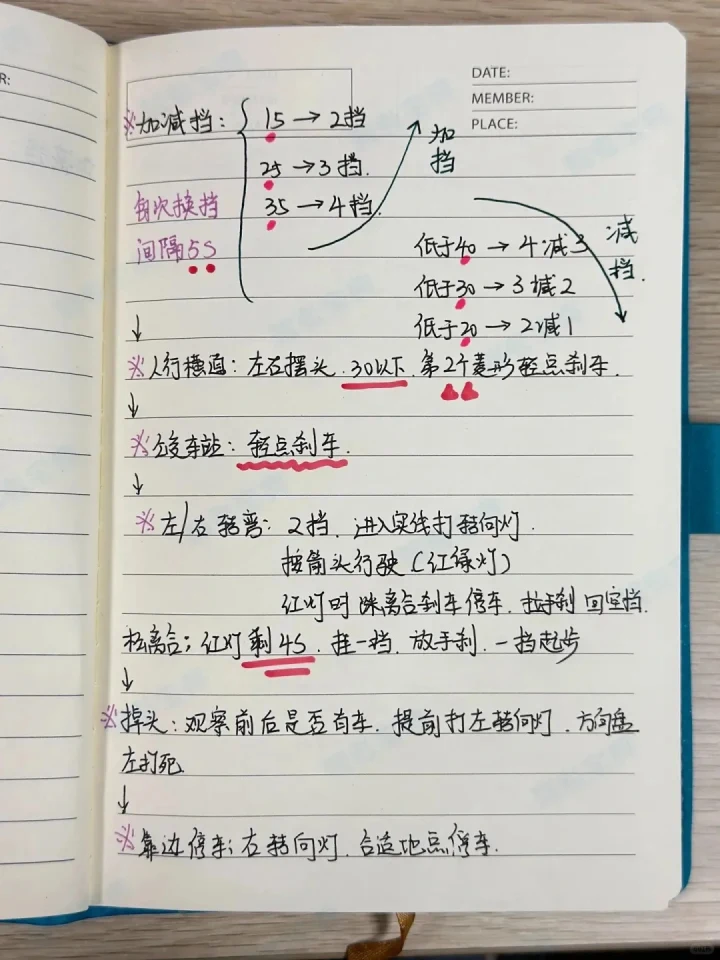 R:
DATE:
MEMBER:
PLACE:
※加减挡: 15→2挡
25→3挡.
35→4挡.
加挡
每次换挡
间隔5S
减挡.
低于40→4减3
低于30→3减2
低于20→2减1
↓
※人行横道: 左右摆头. 30以下. 第2个菱形轻点刹车.
↓
※公交车站: 轻点刹车.
↓
※左/右转弯: 2挡. 进入实线打转向灯.
按箭头行驶(红绿灯)
红灯时踩离合刹车停车. 拉手刹 回空挡.
松离合; 红灯剩4S. 挂一挡. 放手刹. 一挡起步
↓
※掉头: 观察前后是否有车. 提前打左转向灯. 方向盘
左打死.
↓
※靠边停车; 右转向灯. 合适地点停车.